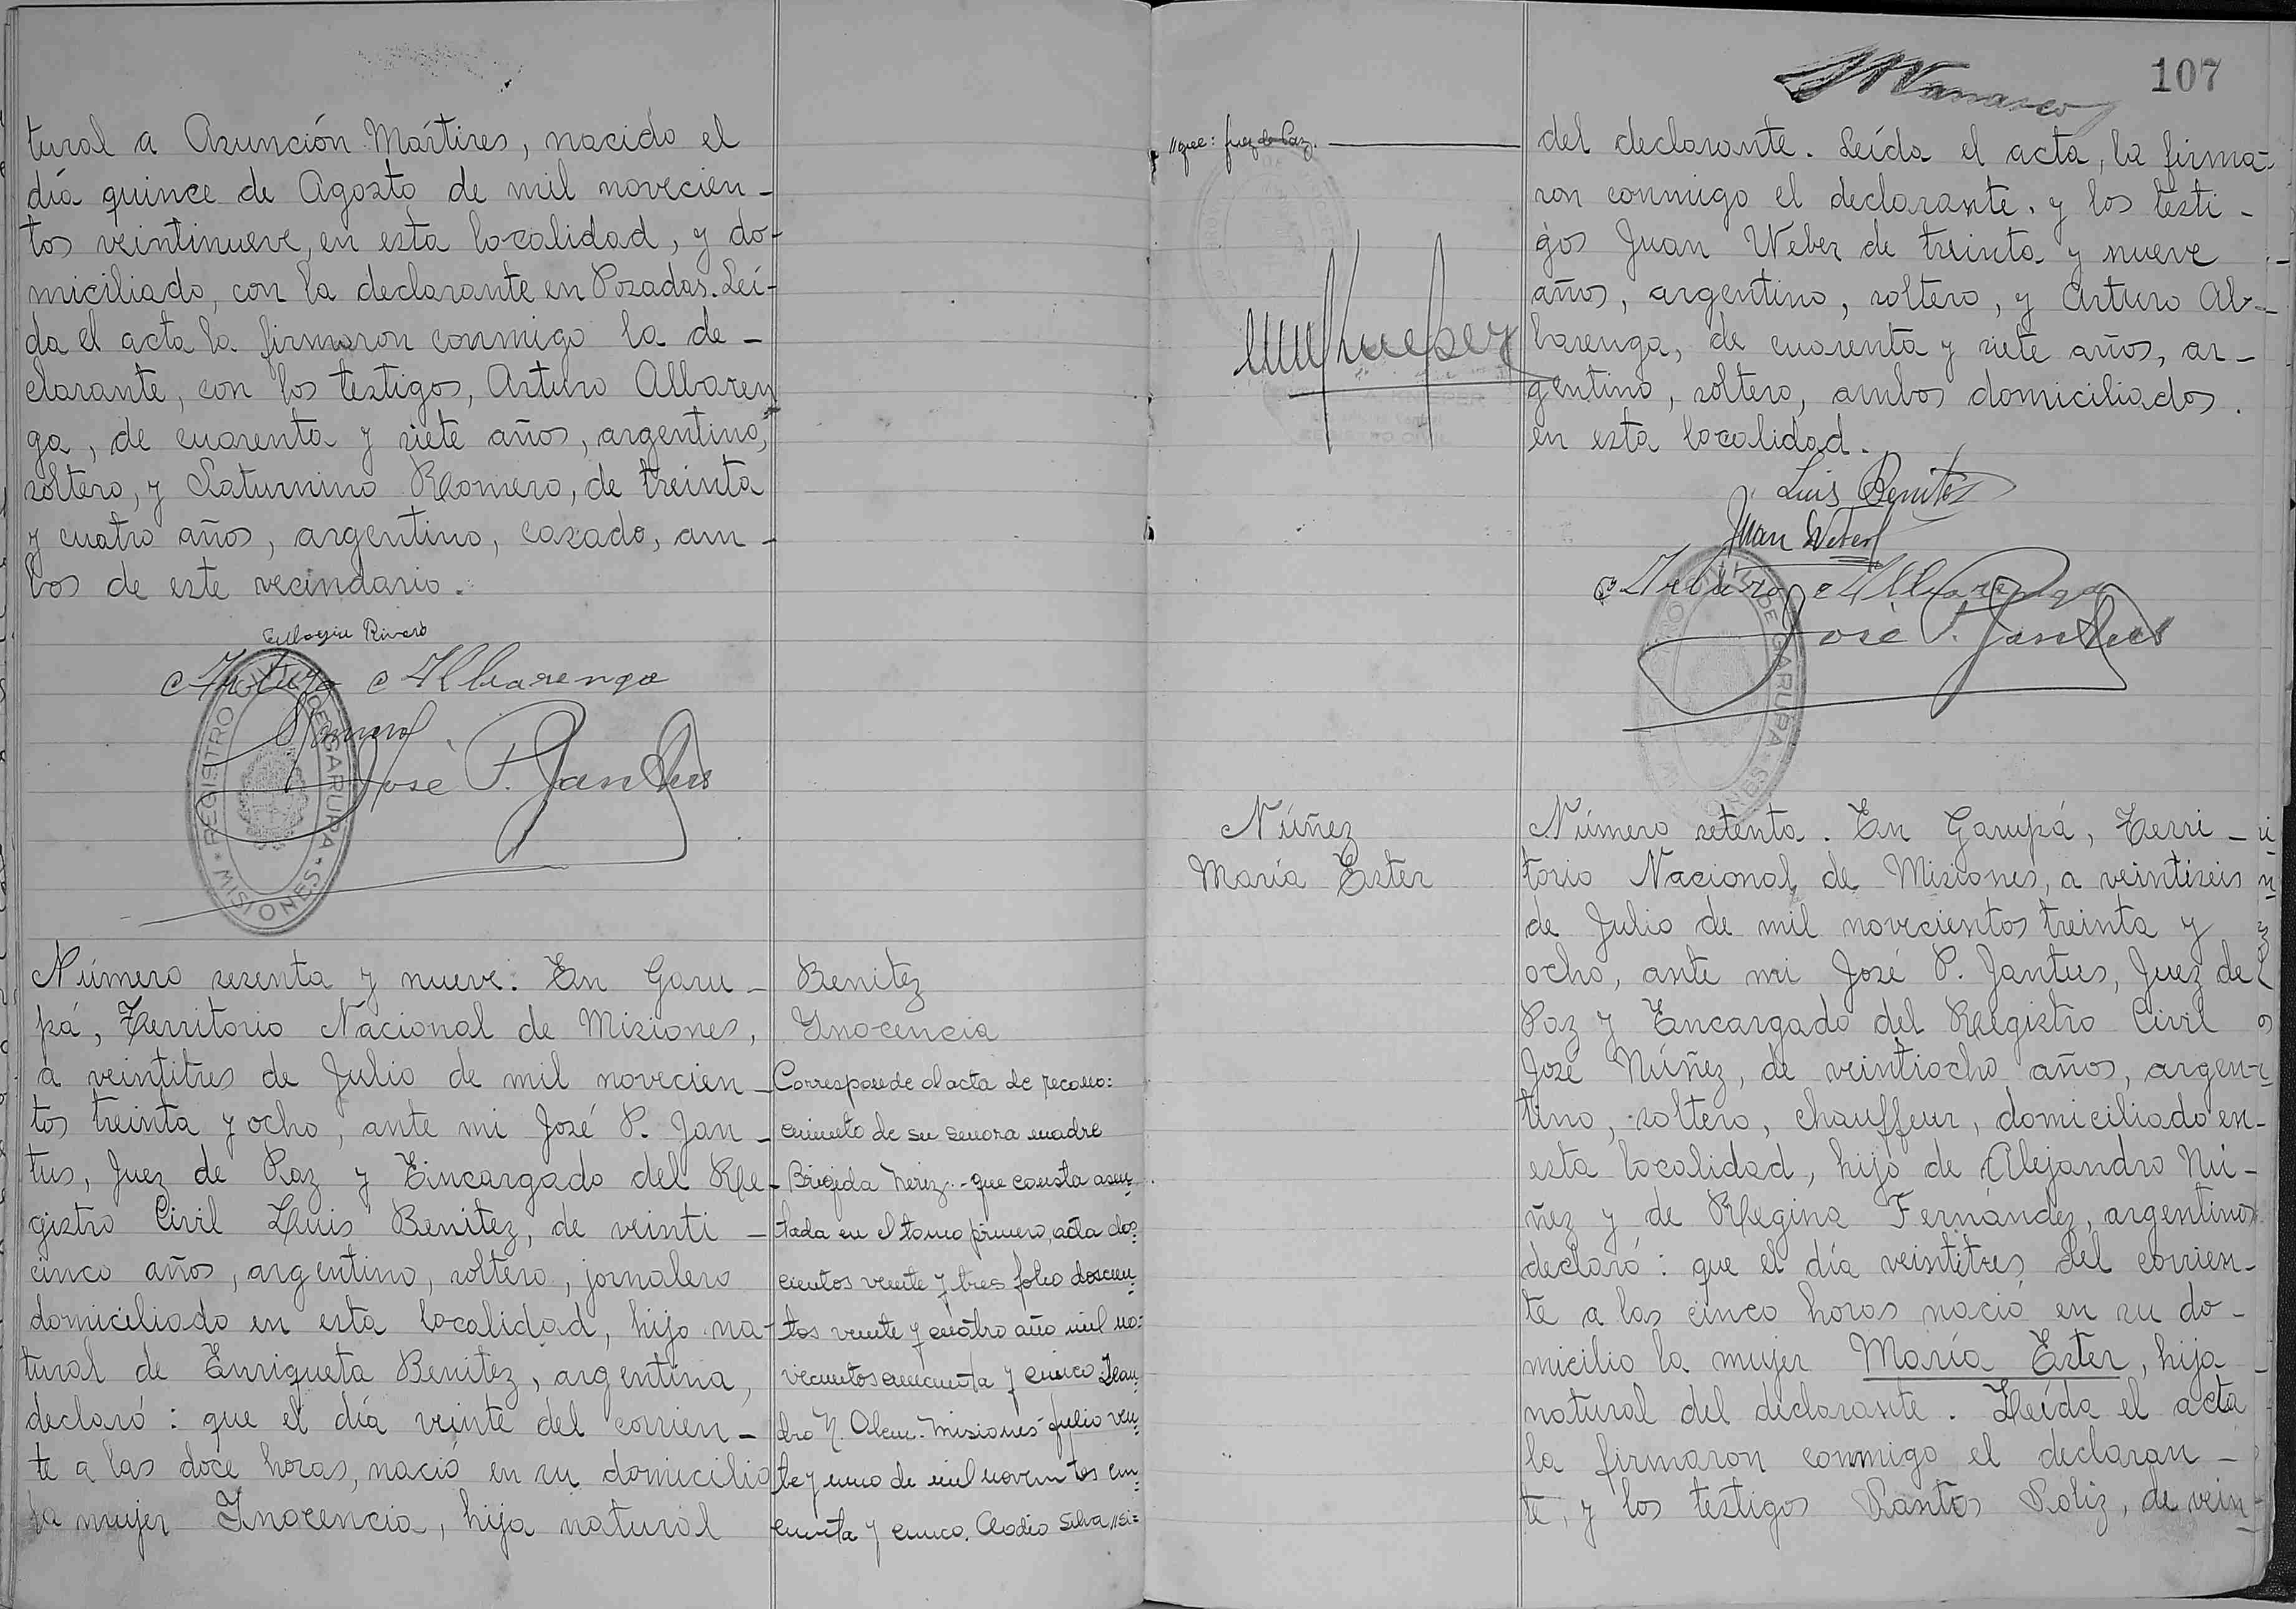 tural a Asunción Mártires, nacido el
día quince de Agosto de mil novecien-
tos veintinueve, en esta localidad, y do-
miciliado, con la declarante en Posadas. Leí-
da el acta la firmaron conmigo la de-
clarante, con los testigos, Arturo Albaren
ga, de cuarenta y siete años, argentino,
soltero, y Saturnino Romero, de treinta
y cuatro años, argentino, casado, am-
bos de este vecindario.
Eulogia Rivero
Arturo Albarenga
SRomero
José P. Jantus
REGISTRO CIVIL DE GARUPA
MISIONES
Número sesenta y nueve. En Garu-
pá, Territorio Nacional de Misiones,
a veintitres de Julio de mil novecien-
tos treinta y ocho, ante mi José P. Jan-
tus, Juez de Paz y Encargado del Re-
gistro Civil Luis Benitez, de veinti-
cinco años, argentino, soltero, jornalero
domiciliado en esta localidad, hijo na-
tural de Enriqueta Benitez, argentina,
declaró: que el día veinte del corrien-
te a las doce horas, nació en su domicilio
la mujer Inocencia, hija natural
Benitez
Inocencia
Corresponde al acta de recono=
cimiento de su señora madre
Brigida Nerez.- que consta asen
tada en el tomo primero, acta dos
cientos veinte y tres folio doscien
tos veinte y cuatro año mil no=
vecientos cincuenta y cinco Lean
dro N. Alem. Misiones Julio vein
te y uno de mil novecientos cin
cuenta y cinco. Clodio Silva //si=
//que: Juez de Paz.
107
del declarante. Leída el acta, la firma-
ron conmigo el declarante, y los testi-
gos Juan Weber de treinta y nueve
años, argentino, soltero, y Arturo Al-
barenga, de cuarenta y siete años, ar-
gentino, soltero, ambos domiciliados.
en esta localidad.
Luis Benitez
Juan Weber
Arturo Albarenga
José P. Jantus
Núñez
María Ester
Número setenta. En Garupá, Terri-
torio Nacional de Misiones, a veintiseis
de Julio de mil novecientos treinta y
ocho, ante mi José P. Jantus, Juez de
Paz y Encargado del Registro Civil
José Núñez, de veintiocho años, argen-
tino, soltero, chauffeur, domiciliado en-
esta localidad, hijo de Alejandro Nú-
ñez y de Regina Fernández, argentinos
declaró: que el día veintitres del corrien-
te a las cinco horas nació en su do-
micilio la mujer María Ester, hija
natural del declarante. Leída el acta
la firmaron conmigo el declaran-
te, y los testigos Santos Soliz, de vein-